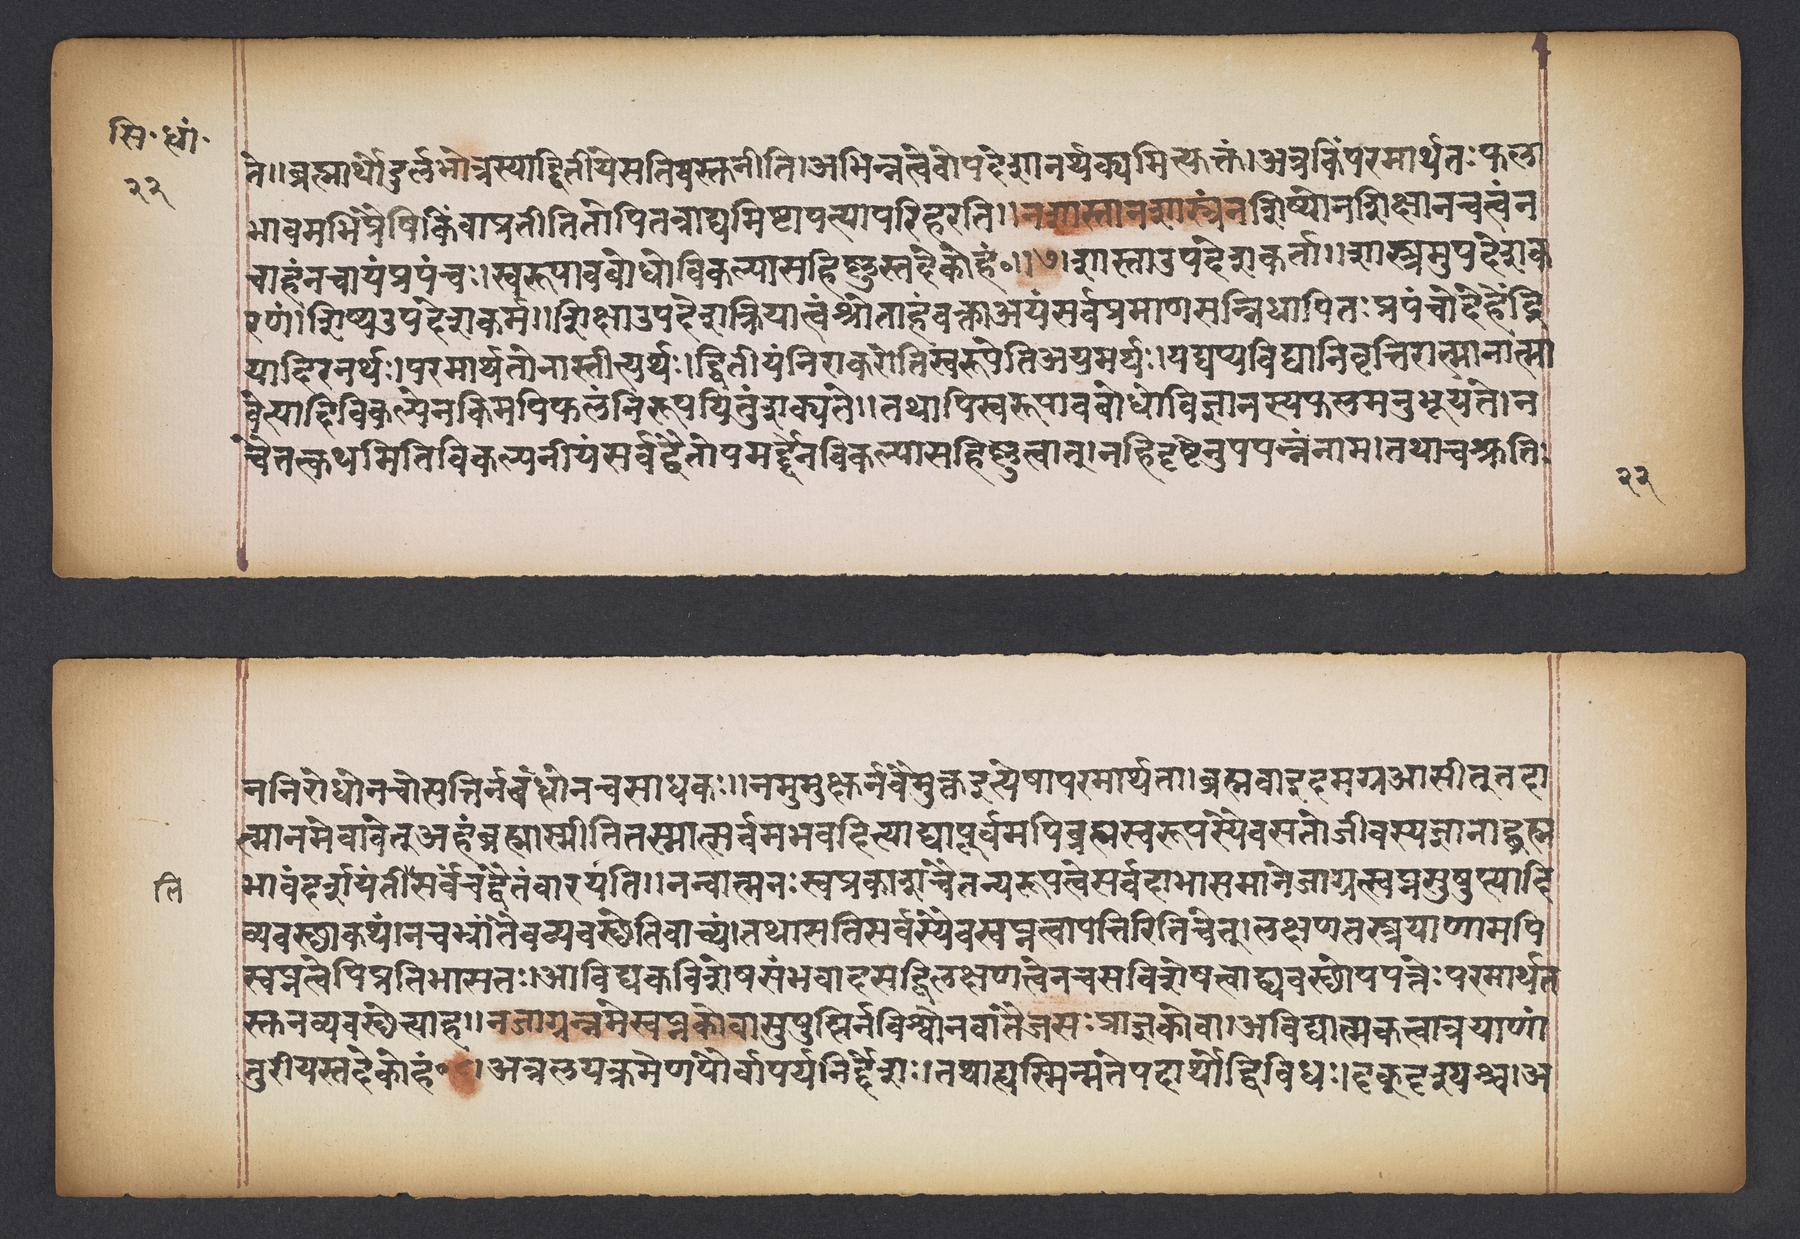 सि॰ धां॰
२२
ते॥ब्रह्मार्थोदुर्लभोत्रस्याद्द्वितीयेसतिवस्तुनीति।अभिन्नत्वेचोपदेशानर्थक्यमित्युक्तं।अत्रकिंपरमार्थतःफला
भावमभिप्रेषिकिंवाप्रतीतितोपितत्राद्यमिष्टापत्त्यापरिहरति॥नशास्तानशास्त्रंनशिष्योनशिक्षानचत्वंन
चाहंनचायंप्रपंचः।स्वरूपावबोधोविकल्पासहिष्णुस्तदेकोहं०।७।शास्ताउपदेशकर्ता॥शास्त्रमुपदेशक
रणं।शिष्यउपदेशकर्म॥शिक्षाउपदेशक्रियात्वंश्रोताहंवक्ताअयंसर्वप्रमाणसन्निधापितःप्रपंचोदेहेंद्रि
यादिरनर्थः।परमार्थतोनास्तीत्यर्थः।द्वितीयंनिराकरोतिस्वरूपेतिअयमर्थः।यद्यप्यविद्यानिवृत्तिरात्मानात्मा
वेत्यादिविकल्पेनकिमपिफलंनिरूपयितुंशक्यते॥तथापिस्वरूपावबोधोविज्ञानस्यफलमनुभूयते।न
चैतत्कथमितिविकल्पनीयंसर्वद्वैतोपमर्द्देनविकल्पासहिष्णुत्वात्।नहिदृष्टेनुपपन्नंनाम।तथाचश्रुतिः
२२
ननिरोधोनचोत्पत्तिर्नबंधोनचसाधकः॥नमुमुक्षुर्नवैमुक्तइत्येषापरमार्थता।ब्रह्मवाइदमग्रआसीत्तदा
त्मानमेवावेत्अहंब्रह्मास्मीतितस्मात्सर्वमभवदित्याद्यापूर्वमपिब्रह्मस्वरूपस्यैवसतोजीवस्यज्ञानाद्ब्रह्म
भावंदर्शयंतीसर्वंचद्वैतंवारयति॥नन्वात्मनःस्वप्रकाशचैतन्यरूपत्वेसर्वदाभासमानेजाग्रत्स्वप्नसुषुप्त्यादि
ति
व्यवस्थाकथं।नचभ्रांतैवव्यवस्थेतिवाच्यं।तथासतिसर्वस्यैवस्वप्नत्वापत्तिरितिचेत्।लक्षणतस्त्रयाणामपि
स्वप्नत्वेपिप्रतिभासतः।आविद्यकविशेषसंभवादसद्विलक्षणत्वेनचसविशेषत्वाद्व्यवस्थोपपत्तेःपरमार्थत
स्तुनव्यवस्थेत्याह॥नजाग्रन्नमेस्वप्नकोवासुषुप्तिर्नविश्वोनवातैजसःप्राज्ञकोवा।अविद्यात्मकत्वात्रयाणां
तुरीयस्तदेकोहं०८।अत्रलयक्रमेणपौर्वापर्यनिर्द्देशः।तथाह्यस्मिन्मतेपदार्थोद्विविधः।दृक्दृश्यश्च।अ